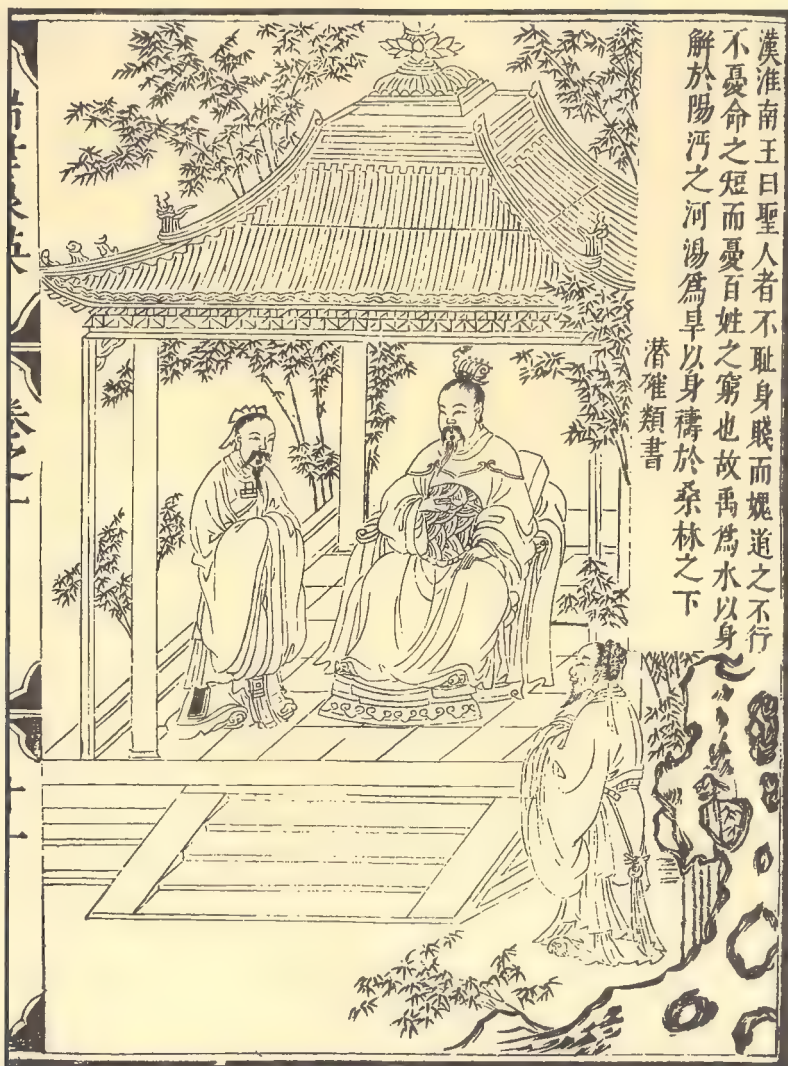 漢淮南王曰聖人者不耻身賤而媿道之不行
不憂命之短而憂百姓之窮也故禹爲水以身
解於陽沔之河湯爲旱以身禱於桑林之下
潛確類書
卷之一
十一